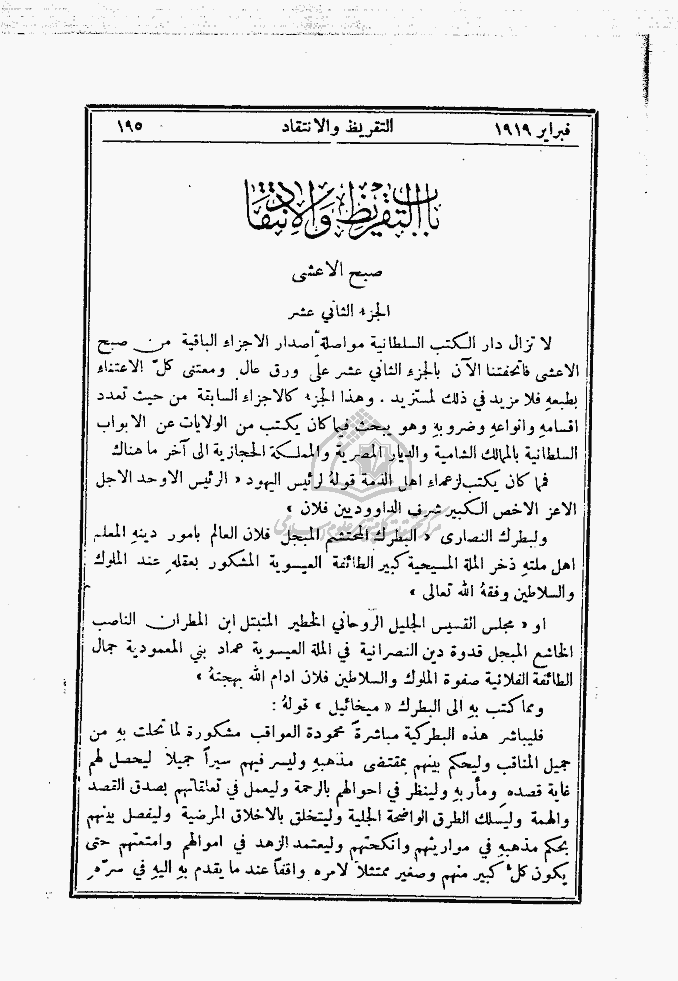 فبراير ١٩١٩ التقريظ والانتقاد ١٩٥
باب التقريظ والانتقاد
صبح الاعشى
الجزء الثاني عشر
لا تزال دار الكتب السلطانية مواصلة اصدار الاجزاء الباقية من صبح
الاعشى فاتحفتنا الآن بالجزء الثاني عشر على ورق عال ومعتنى كلّ الاعتناء
بطبعهِ فلا مزيد في ذلك لمستزيد . وهذا الجزء كالاجزاء السابقة من حيث تعدد
اقسامهِ وانواعهِ وضروبهِ وهو يبحث فيما كان يكتب من الولايات عن الابواب
السلطانية بالممالك الشامية والديار المصرية والمملكة الحجازية الى آخر ما هنالك
فما كان يكتب لزعماء اهل الذمة قولهُ لرئيس اليهود « الرئيس الاوحد الاجل
الاعز الاخص الكبير شرف الداووديين فلان »
ولبطرك النصارى « البطرك المحتشم المبجل فلان العالم بامور دينهِ المعلم
اهل ملتهِ ذخر الملة المسيحية كبير الطائفة العيسوية المشكور بعقلهِ عند الملوك
والسلاطين وفقهُ الله تعالى »
او « مجلس القسيس الجليل الروحاني الخطير المتبتل ابن المطران الناصب
الخاشع المبجل قدوة دين النصرانية في الملة العيسوية عماد بني المعمودية جمال
الطائفة الفلانية صفوة الملوك والسلاطين فلان ادام الله بهجتهُ »
ومما كتب بهِ الى البطرك « ميخائيل » قولهُ :
فليباشر هذه البطركية مباشرةً محمودة العواقب مشكورة لما تحلت بهِ من
جميل المناقب وليحكم بينهم بمقتضى مذهبهِ وليسر فيهم سيراً جميلاً ليحصل لهم
غاية قصدهِ ومأربهِ ولينظر في احوالهم بالرحمة وليعمل في تعلقاتهم بصدق القصد
والهمة وليسلك الطرق الواضحة الجلية وليتخلق بالاخلاق المرضية وليفصل بينهم
بحكم مذهبهِ في مواريثهم وانكحتهم وليعتمد الزهد في اموالهم وامتعتهم حتى
يكون كلّ كبير منهم وصغير ممتثلاً لامره واقفاً عند ما يقدم بهِ اليهِ في سرّهِ